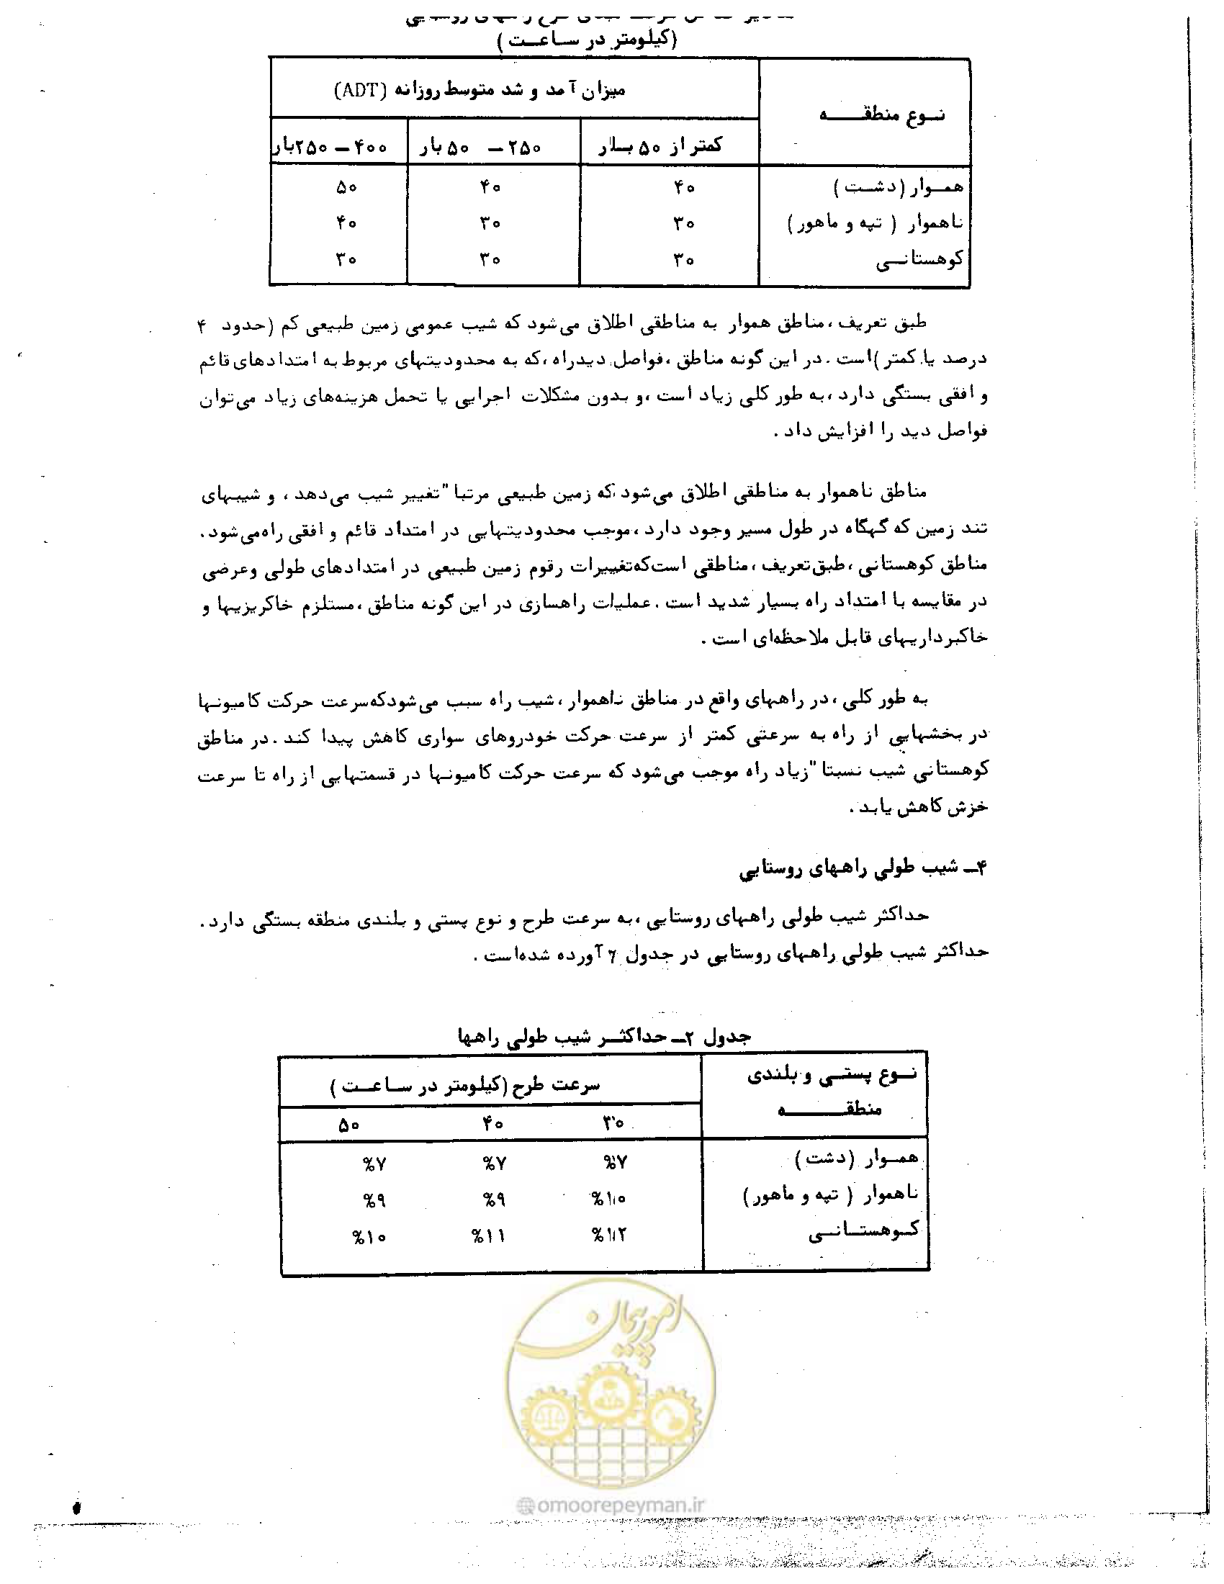 (کیلومتر در ساعت)
نوع منطقه
میزان آمد و شد متوسط روزانه (ADT)
کمتر از ۵۰ بار
۲۵۰ – ۵۰ بار
۴۰۰ – ۲۵۰ بار
هموار (دشت) ۴۰ ۴۰ ۵۰
ناهموار (تپه و ماهور) ۳۰ ۳۰ ۴۰
کوهستانی ۳۰ ۳۰ ۳۰
طبق تعریف، مناطق هموار به مناطقی اطلاق می‌شود که شیب عمومی زمین طبیعی کم (حدود ۴
درصد یا کمتر) است. در این گونه مناطق، فواصل دید راه، که به محدودیتهای مربوط به امتدادهای قائم
و افقی بستگی دارد، به طور کلی زیاد است، و بدون مشکلات اجرایی یا تحمل هزینه‌های زیاد می‌توان
فواصل دید را افزایش داد.
مناطق ناهموار به مناطقی اطلاق می‌شود که زمین طبیعی مرتبا" تغییر شیب می‌دهد، و شیبهای
تند زمین که گهگاه در طول مسیر وجود دارد، موجب محدودیتهایی در امتداد قائم و افقی راه می‌شود.
مناطق کوهستانی، طبق تعریف، مناطقی است که تغییرات رقوم زمین طبیعی در امتدادهای طولی و عرضی
در مقایسه با امتداد راه بسیار شدید است. عملیات راهسازی در این گونه مناطق، مستلزم خاکریزیها و
خاکبرداریهای قابل ملاحظه‌ای است.
به طور کلی، در راههای واقع در مناطق ناهموار، شیب راه سبب می‌شود که سرعت حرکت کامیونها
در بخشهایی از راه به سرعتی کمتر از سرعت حرکت خودروهای سواری کاهش پیدا کند. در مناطق
کوهستانی شیب نسبتا" زیاد راه موجب می‌شود که سرعت حرکت کامیونها در قسمتهایی از راه تا سرعت
خزش کاهش یابد.
۴ــ شیب طولی راههای روستایی
حداکثر شیب طولی راههای روستایی، به سرعت طرح و نوع پستی و بلندی منطقه بستگی دارد.
حداکثر شیب طولی راههای روستایی در جدول ۲ آورده شده‌است.
جدول ۲ــ حداکثر شیب طولی راهها
نوع پستی و بلندی
منطقه
سرعت طرح (کیلومتر در ساعت)
۳۰ ۴۰ ۵۰
هموار (دشت) %۷ %۷ %۷
ناهموار (تپه و ماهور) %۱۰ %۹ %۹
کوهستانی %۱۲ %۱۱ %۱۰
امور پیمان
@omoorepeyman.ir